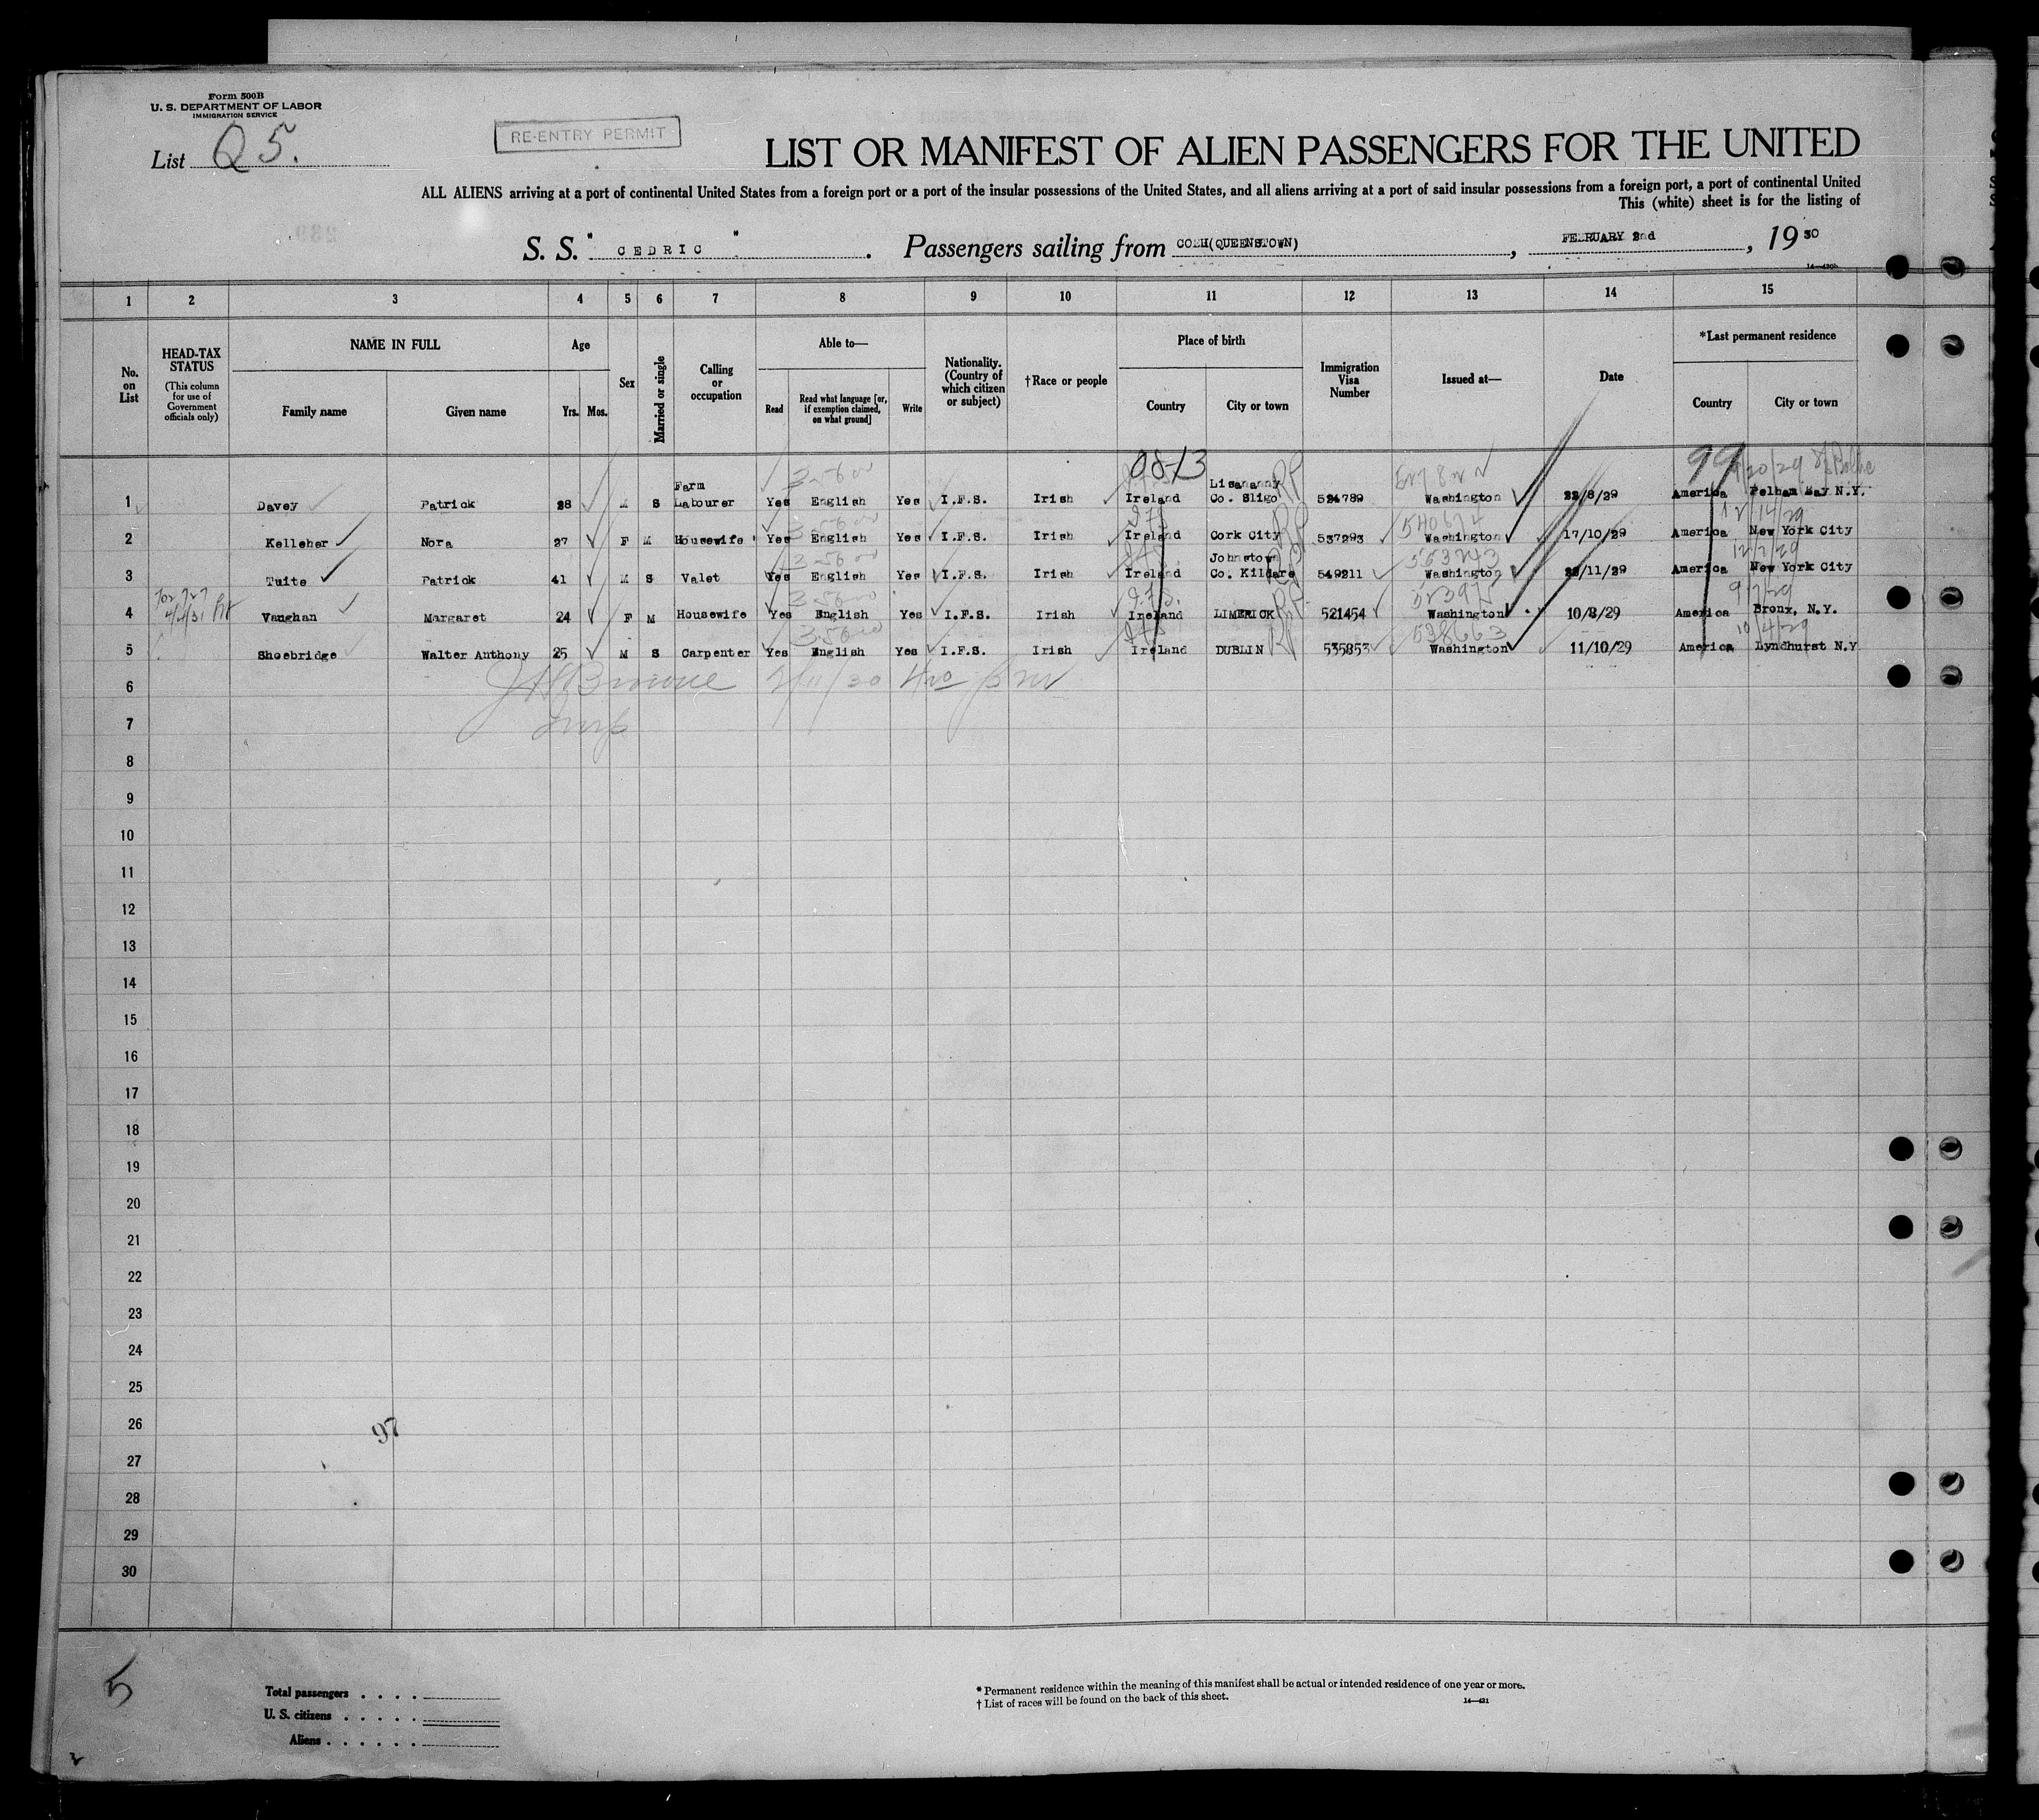 Form 500B
U. S. DEPARTMENT OF LABOR
IMMIGRATION SERVICE
List Q 5.
RE-ENTRY PERMIT
LIST OR MANIFEST OF ALIEN PASSENGERS FOR THE UNITED
ALL ALIENS arriving at a port of continental United States from a foreign port or a port of the insular possessions of the United States, and all aliens arriving at a port of said insular possessions from a foreign port, a port of continental United
This (white) sheet is for the listing of
S. S. "CEDRIC". Passengers sailing from COBH(QUEENSTOWN), FEBRUARY 2nd, 1930
1 2 3 4 5 6 7 8 9 10 11 12 13 14 15
No. on List
HEAD-TAX STATUS (This column for use of Government officials only)
NAME IN FULL Family name Given name
Age Yrs. Mos.
Sex
Married or single
Calling or occupation
Able to— Read Read what language [or, if exemption claimed, on what ground] Write
Nationality. (Country of which citizen or subject)
†Race or people
Place of birth Country City or town
Immigration Visa Number
Issued at—
Date
*Last permanent residence Country City or town
0813 99
1 Davey Patrick 28 M S Farm Labourer Yes English Yes I.F.S. Irish Ireland Lisananny Co. Sligo RP 524789 Washington 22/8/29 America Pelham Bay N.Y.
540674 12/14/29
2 Kelleher Nora 27 F M Housewife Yes English Yes I.F.S. Irish Ireland Cork City RP 537293 Washington 17/10/29 America New York City
553243 12/7/29
3 Tuite Patrick 41 M S Valet Yes English Yes I.F.S. Irish Ireland Johnstown Co. Kildare RP 549211 Washington 22/11/29 America New York City
9/7/29
4 Vaughan Margaret 24 F M Housewife Yes English Yes I.F.S. Irish Ireland LIMERICK RP 521454 Washington 10/8/29 America Bronx, N.Y.
538663 10/4/29
5 Shoebridge Walter Anthony 25 M S Carpenter Yes English Yes I.F.S. Irish Ireland DUBLIN RP 535853 Washington 11/10/29 America Lyndhurst N.Y
6 Browne 2/11/30
7 Insp
8
9
10
11
12
13
14
15
16
17
18
19
20
21
22
23
24
25
26
97
27
28
29
30
5
Total passengers
U. S. citizens
Aliens
* Permanent residence within the meaning of this manifest shall be actual or intended residence of one year or more.
† List of races will be found on the back of this sheet.
14—421